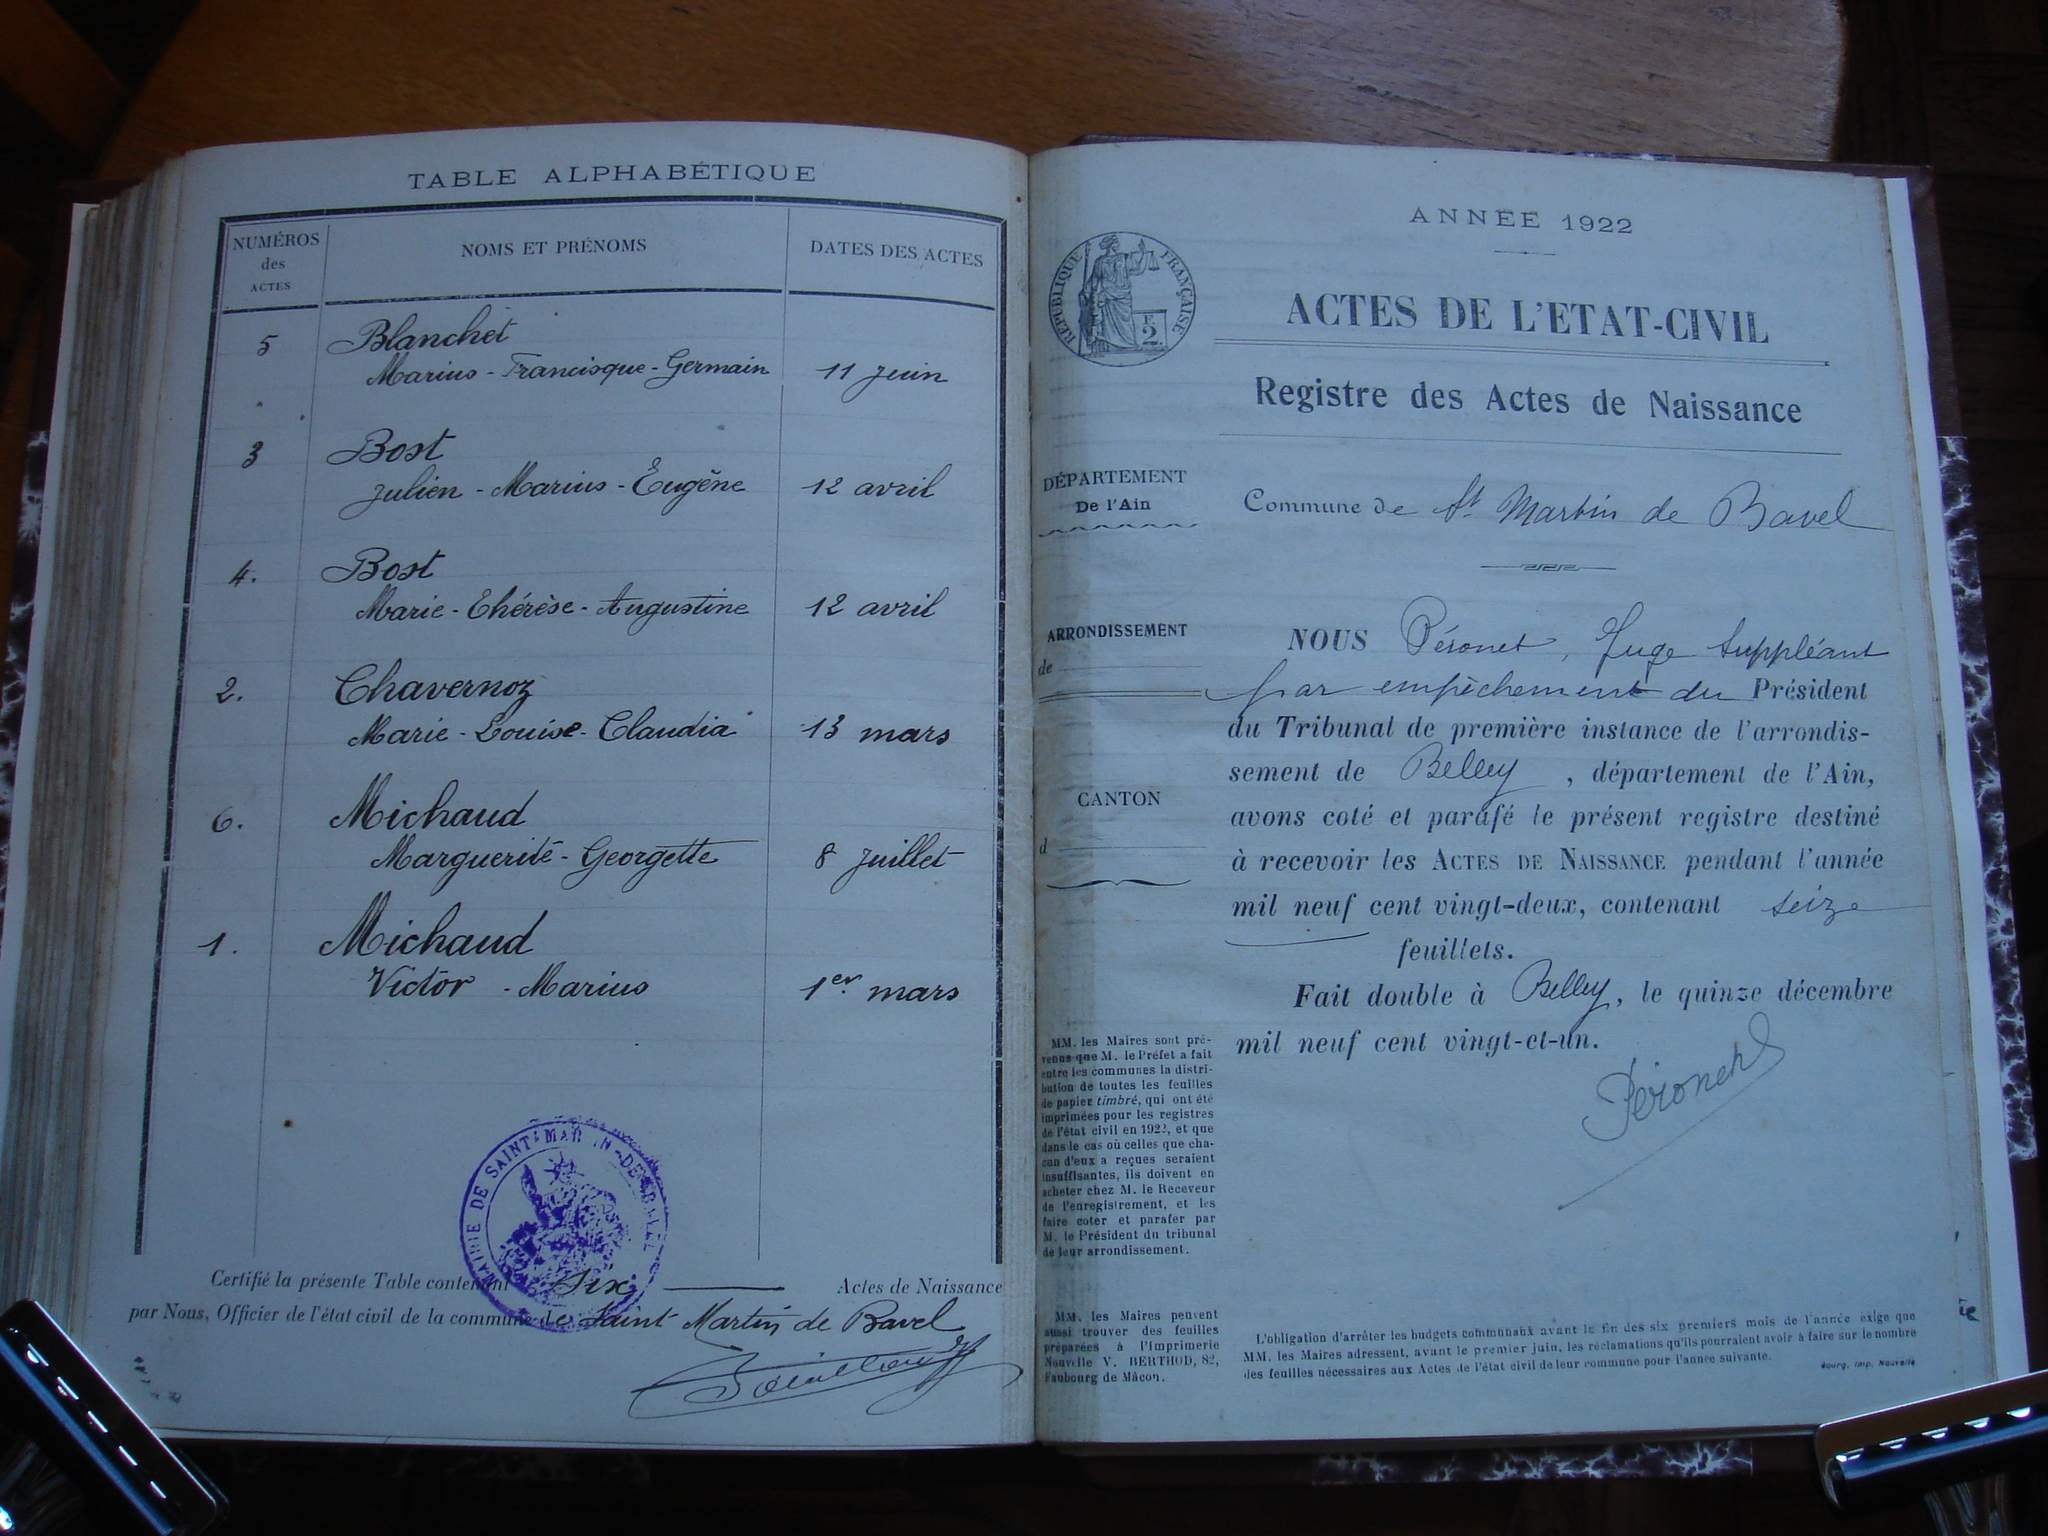 TABLE ALPHABÉTIQUE
NUMÉROS des ACTES
NOMS ET PRÉNOMS
DATES DES ACTES
5 Blanchet
Marius - Francisque - Germain 11 juin
3 Bost
Julien - Marius - Eugène 12 avril
4. Bost
Marie - Thérèse - Augustine 12 avril
2. Chavernoz
Marie - Louise - Claudia 13 mars
6. Michaud
Marguerite - Georgette 8 juillet
1. Michaud
Victor - Marius 1er mars
MAIRIE DE SAINT-MARTIN-DE-BAVEL
Certifié la présente Table contenant six Actes de Naissance
par Nous, Officier de l'état civil de la commune de Saint Martin de Bavel
ANNÉE 1922
RÉPUBLIQUE FRANÇAISE
2
ACTES DE L'ETAT-CIVIL
Registre des Actes de Naissance
DÉPARTEMENT
De l'Ain
Commune de St Martin de Bavel
ARRONDISSEMENT
de
CANTON
d
NOUS Péronet, Juge Suppléant
par empêchement du Président
du Tribunal de première instance de l'arrondis-
sement de Belley, département de l'Ain,
avons coté et parafé le présent registre destiné
à recevoir les ACTES DE NAISSANCE pendant l'année
mil neuf cent vingt-deux, contenant seize
feuillets.
Fait double à Belley, le quinze décembre
mil neuf cent vingt-et-un.
Péronet
MM. les Maires sont pré-
venus que M. le Préfet a fait
entre les communes la distri-
bution de toutes les feuilles
de papier timbré, qui ont été
imprimées pour les registres
de l'état civil en 1922, et que
dans le cas où celles que cha-
cun d'eux a reçues seraient
insuffisantes, ils doivent en
acheter chez M. le Receveur
de l'enregistrement, et les
faire coter et parafer par
M. le Président du tribunal
de leur arrondissement.
MM. les Maires peuvent
aussi trouver des feuilles
préparées à l'Imprimerie
Nouvelle V. BERTHOD, 82,
Faubourg de Mâcon.
L'obligation d'arrêter les budgets communaux avant le fin des six premiers mois de l'année exige que
MM. les Maires adressent, avant le premier juin, les réclamations qu'ils pourraient avoir à faire sur le nombre
des feuilles nécessaires aux Actes de l'état civil de leur commune pour l'année suivante.
Bourg, Imp. Nouvelle